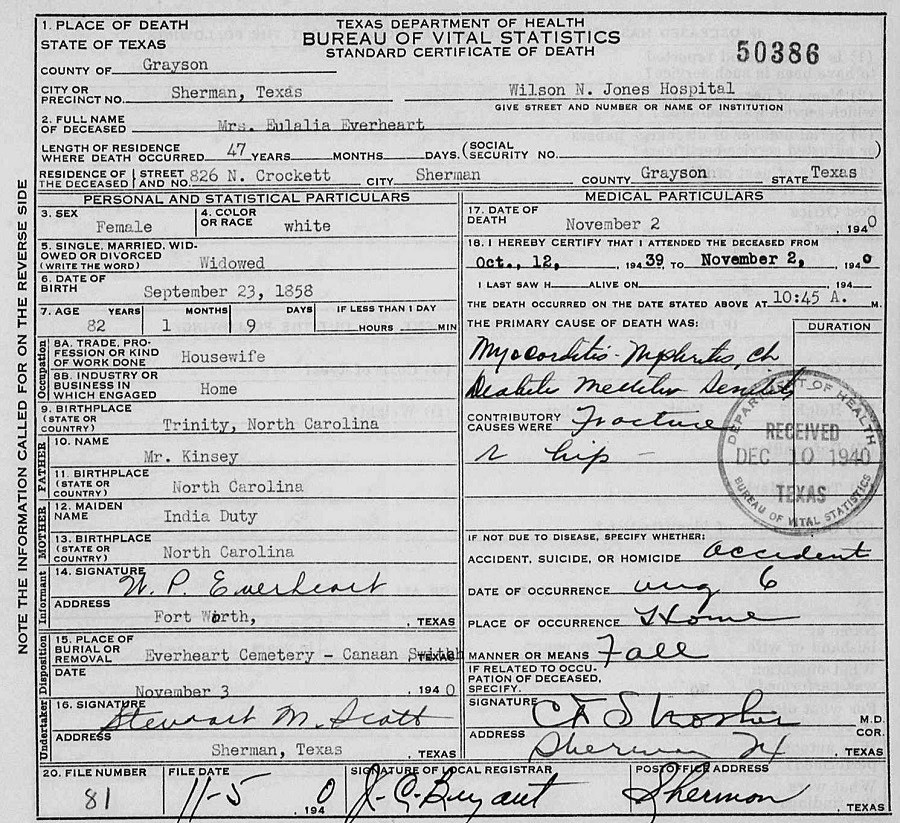 TEXAS DEPARTMENT OF HEALTH
BUREAU OF VITAL STATISTICS
STANDARD CERTIFICATE OF DEATH
50386
1. PLACE OF DEATH
STATE OF TEXAS
COUNTY OF Grayson
CITY OR PRECINCT NO. Sherman, Texas Wilson N. Jones Hospital
GIVE STREET AND NUMBER OR NAME OF INSTITUTION
2. FULL NAME OF DECEASED Mrs. Eulalia Everheart
LENGTH OF RESIDENCE WHERE DEATH OCCURRED 47 YEARS MONTHS DAYS. (SOCIAL SECURITY NO. )
RESIDENCE OF THE DECEASED STREET AND NO. 826 N. Crockett CITY Sherman COUNTY Grayson STATE Texas
PERSONAL AND STATISTICAL PARTICULARS
3. SEX Female 4. COLOR OR RACE white
5. SINGLE, MARRIED, WIDOWED OR DIVORCED (WRITE THE WORD) Widowed
6. DATE OF BIRTH September 23, 1858
7. AGE YEARS MONTHS DAYS IF LESS THAN 1 DAY
82 1 9 HOURS MIN
Occupation
8A. TRADE, PROFESSION OR KIND OF WORK DONE Housewife
8B. INDUSTRY OR BUSINESS IN WHICH ENGAGED Home
9. BIRTHPLACE (STATE OR COUNTRY) Trinity, North Carolina
FATHER
10. NAME Mr. Kinsey
11. BIRTHPLACE (STATE OR COUNTRY) North Carolina
MOTHER
12. MAIDEN NAME India Duty
13. BIRTHPLACE (STATE OR COUNTRY) North Carolina
Informant
14. SIGNATURE W. P. Everheart
ADDRESS Fort Worth, , TEXAS
Disposition
15. PLACE OF BURIAL OR REMOVAL Everheart Cemetery - Canaan Switch , TEXAS
DATE November 3 , 1940
Undertaker
16. SIGNATURE Stewart M. Scott
ADDRESS Sherman, Texas , TEXAS
MEDICAL PARTICULARS
17. DATE OF DEATH November 2 , 1940
18. I HEREBY CERTIFY THAT I ATTENDED THE DECEASED FROM
Oct., 12, 1939 TO November 2, 1940
I LAST SAW H ALIVE ON , 194
THE DEATH OCCURRED ON THE DATE STATED ABOVE AT 10:45 A. M.
THE PRIMARY CAUSE OF DEATH WAS: DURATION
Myocorditis - Nephritis, ch
CONTRIBUTORY CAUSES WERE Fracture
r hip -
DEPARTMENT OF HEALTH
RECEIVED
DEC 10 1940
TEXAS
BUREAU OF VITAL STATISTICS
IF NOT DUE TO DISEASE, SPECIFY WHETHER:
ACCIDENT, SUICIDE, OR HOMICIDE accident
DATE OF OCCURRENCE aug 6
PLACE OF OCCURRENCE Home
MANNER OR MEANS Fall
IF RELATED TO OCCUPATION OF DECEASED, SPECIFY.
SIGNATURE M.D.
COR.
ADDRESS Sherman Tx , TEXAS
20. FILE NUMBER FILE DATE SIGNATURE OF LOCAL REGISTRAR POSTOFFICE ADDRESS
81 11-5 , 1940 J. C. Bryant Sherman , TEXAS
NOTE THE INFORMATION CALLED FOR ON THE REVERSE SIDE